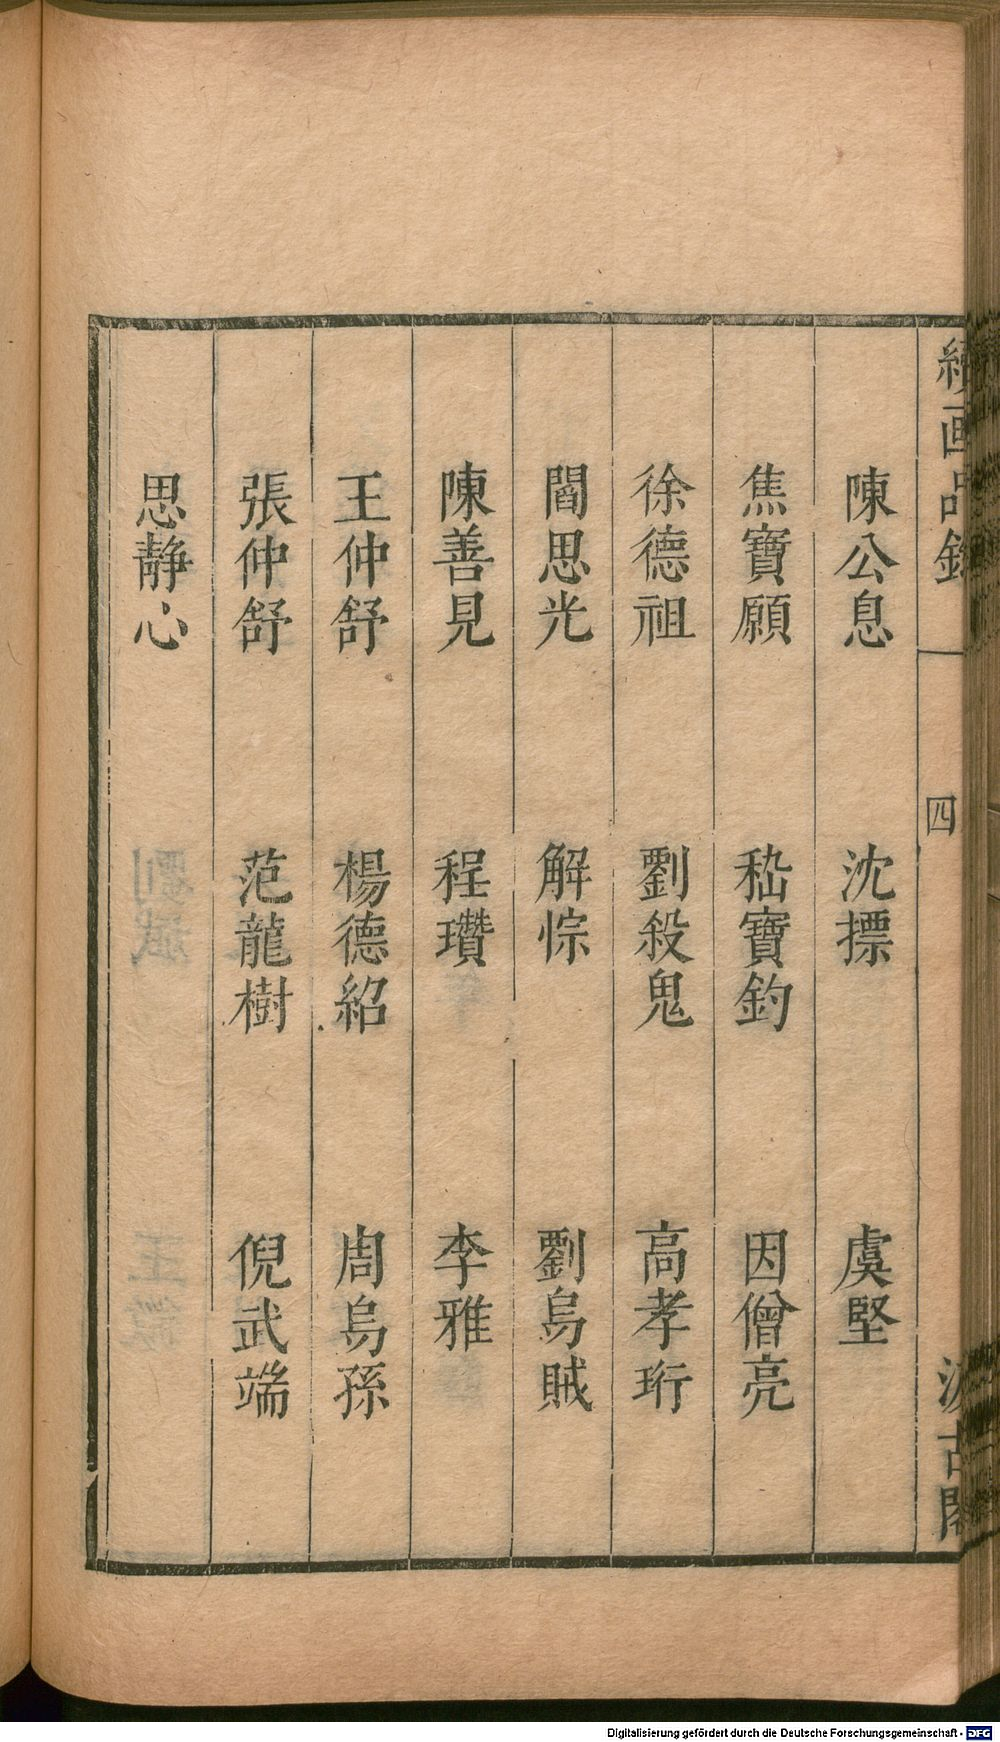 續画品錄
四
汲古閣
陳公息 沈摽 虞堅
焦寶願 嵇寶鈞 因僧亮
徐德祖 劉殺鬼 高孝珩
閻思光 解悰 劉烏賊
陳善見 程瓚 李雅
王仲舒 楊德紹 周烏孫
張仲舒 范龍樹 倪武端
思靜心
Digitalisierung gefördert durch die Deutsche Forschungsgemeinschaft - DFG